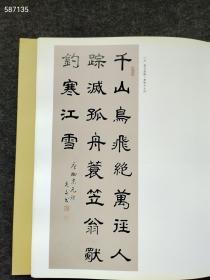 587135
千山鳥飛絕萬徑人
踪滅孤舟蓑笠翁獨
釣寒江雪